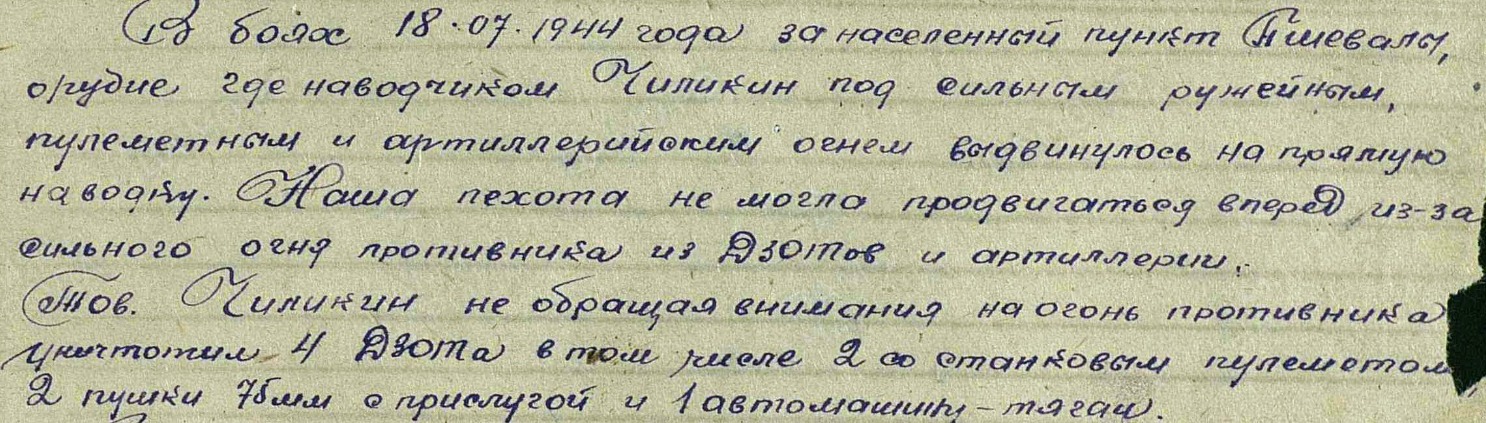 В боях 18.07.1944 года за населенный пункт Пшевалы,
орудие где наводчиком Чиликин под сильным ружейным,
пулеметным и артиллерийским огнем выдвинулось на прямую
наводку. Наша пехота не могла продвигаться вперед из-за
сильного огня противника из ДЗОТов и артиллерии.
Тов. Чиликин не обращая внимания на огонь противника
уничтожил 4 ДЗОТа в том числе 2 со станковым пулеметом
2 пушки 75мм с прислугой и 1 автомашину-тягач.